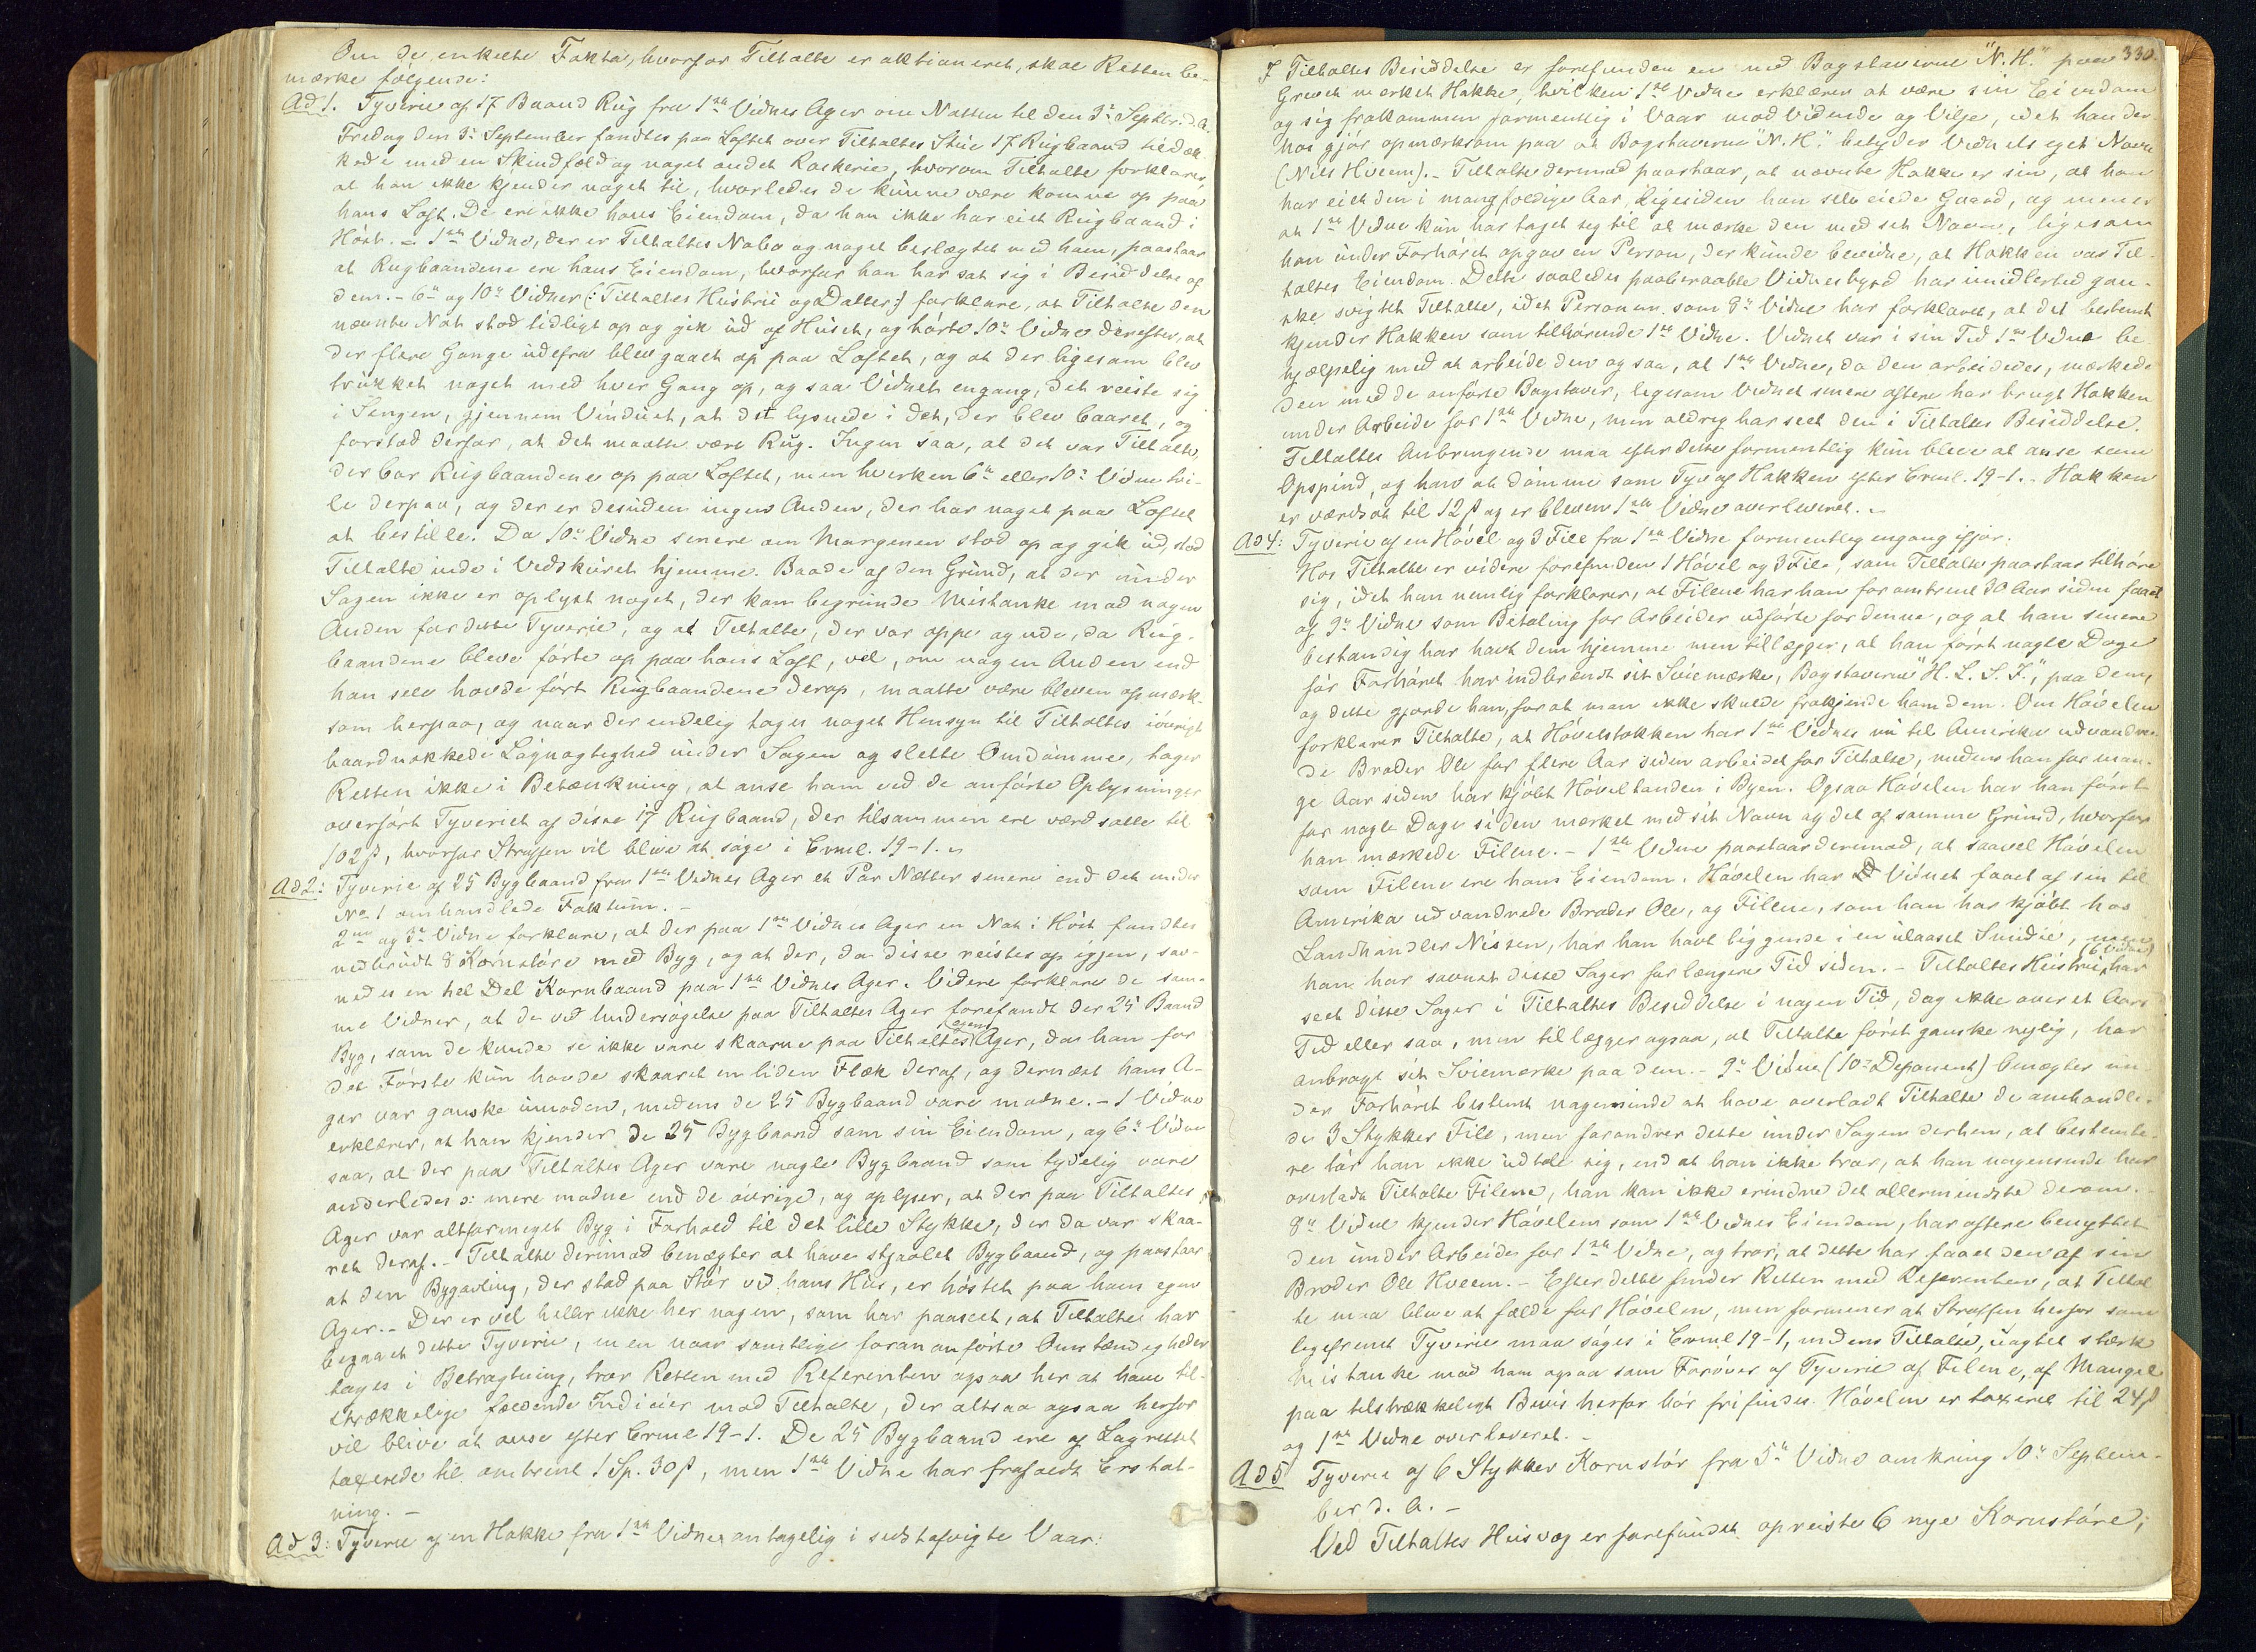 Om de enkelte Fakta, hvorfor Tiltalte er aktioneret, skal Retten be-
mærke følgende:
Ad 1. Tyverie af 17 Baand Rug fra 1ste Vidnes Ager om Natten til den 3die Septbr. d. A.
Fredag den 3die September fandtes paa Loftet over Tiltaltes Stue 17 Rugbaand tildæk-
kede med en Skindfeld og noget andet Raskerie, hvorom Tiltalte forklarer,
at han ikke kjender noget til, hvorledes de kunne være komne op paa
hans Loft. De ere ikke hans Eiendom, da han ikke har eiet Rugbaand i
Høst. – 1ste Vidne, der er Tiltaltes Nabo og noget beslægtet med ham, paastaar
at Rugbaandene ere hans Eiendom, hvorfor han har sat sig i Besiddelse af
dem. – 6te og 10de Vidner (: Tiltaltes Hustru og Datter :) forklare, at Tiltalte den
nævnte Nat stod tidligt op og gik ud af Huset, og hørte 10de Vidne derefter, at
der flere Gange udefra blev gaaet op paa Loftet, og at der ligesom blev
trukket noget med hver Gang op, og saa Vidnet engang, det reiste sig
i Sengen, gjennem Vinduet, at det lysnede i det, der blev baaret, og
forstod derfor, at det maatte være Rug. Ingen saa, at det var Tiltalte,
der bar Rugbaandene op paa Loftet, men hverken 6te eller 10de Vidne tvi-
le derpaa, og der er desuden ingen Anden, der har noget paa Loftet
at bestille. Da 10de Vidne senere om Morgenen stod op og gik ud, stod
Tiltalte inde i Vedskuret hjemme. Baade af den Grund, at der under
Sagen ikke er oplyst noget, der kan begrunde Mistanke mod nogen
Anden for dette Tyverie, og at Tiltalte, der var oppe og ude, da Rug-
baandene bleve førte op paa hans Loft, vel, om nogen Anden end
han selv havde ført Rugbaandene derop, maatte være bleven opmærk-
som herpaa, og naar der endelig tages noget Hensyn til Tiltaltes iøvrigt
haardnakkede Løgnagtighed under Sagen og slette Omdømme, tager
Retten ikke i Betænkning, at anse ham ved de anførte Oplysninger
overført Tyveriet af disse 17 Rugbaand, der tilsammen ere værdsatte til
102 ß, hvorfor Straffen vil blive at søge i Crml. 19-1. –
Ad 2: Tyverie af 25 Bygbaand fra 1ste Vidnes Ager et Par Nætter senere end det under
No 1 omhandlede Faktum. –
2det og 3die Vidne forklare, at der paa 1ste Vidnes Ager en Nat i Høst fandtes
nedbrudt 8 Kornstøre med Byg, og at der, da disse reistes op igjen, sav-
nedes en hel Del Kornbaand paa 1ste Vidnes Ager. Videre forklare de sam-
me Vidner, at de ved Undersøgelse paa Tiltaltes Ager forefandt der 25 Baand
Byg, som de kunde se ikke vare skaarne paa Tiltaltes egen Ager, da han for
det Første kun havde skaaret en liden Flæk deraf, og dernæst hans A-
ger var ganske umoden, medens de 25 Bygbaand vare modne. – 1 Vidne
erklærer, at han kjender de 25 Bygbaand som sin Eiendom, og 6te Vidne
saa, at der paa Tiltaltes Ager vare nogle Bygbaand som tydelig vare
anderledes ɔ: mere modne end de øvrige, og oplyser, at der paa Tiltaltes
Ager var altformeget Byg i Forhold til det lille Stykke, der da var skaa-
ret deraf. – Tiltalte derimod benægter at have stjaalet Bygbaand, og paastaar
at den Bygavling, der stod paa Stør ved hans Hus, er høstet paa hans egen
Ager. – Der er vel heller ikke her nogen, som har paaseet, at Tiltalte har
begaaet dette Tyverie, men naar samtlige foran anførte Omstændigheder
tages i Betragtning, tror Retten med Referenten ogsaa her at have til-
strækkelige fældende Indicier mod Tiltalte, der altsaa ogsaa herfor
vil blive at anse efter Crml 19-1. De 25 Bygbaand ere af Lagrettet
taxerede til omtrent 1 Sp. 30 ß, men 1ste Vidne har frafaldt Erstat-
ning. –
Ad 3: Tyverie af en Hakke fra 1ste Vidne antagelig i sidstafvigte Vaar:
330.
I Tiltaltes Besiddelse er forefunden en med Bogstaverne "N. H." paa
Grevet mærket Hakke, hvilken 1ste Vidne erklærer at være sin Eiendom
og sig frakommen formentlig i Vaar mod Vidende og Vilje, idet han der-
hos gjør opmærksom paa at Bogstaverne "N. H." betyder Vidnets eget Navn
(Nils Hveem). – Tiltalte derimod paastaar, at nævnte Hakke er sin, at han
har eiet den i mangfoldige Aar, ligesiden han selv eiede Gaard, og mener
at 1ste Vidne kun har taget sig til at mærke den med sit Navn, ligesom
han under Forhøret opgav en Person, der kunde bevidne, at Hakken var Til-
taltes Eiendom. Dette saaledes paaberaabte Vidnesbyrd har imidlertid gan-
ske svigtet Tiltalte, idet Personen som 8de Vidne har forklaret, at det bestemt
kjender Hakken som tilhørende 1ste Vidne. Vidnet var i sin Tid 1ste Vidne be-
hjælpelig med at arbeide den og saa, at 1ste Vidne, da den arbeidedes, mærkede
den med de anførte Bogstaver, ligesom Vidnet senere oftere har brugt Hakken
under Arbeide for 1ste Vidne, men aldrig har seet den i Tiltaltes Besiddelse.
Tiltaltes Anbringende maa efter dette formentlig kun blive at anse som
Opspind, og han at dømme som Tyv af Hakken efter Crml. 19-1. – Hakken
er værdsat til 12 ß og er bleven 1ste Vidne overleveret. –
Ad 4: Tyverie af en Høvel og 3 File fra 1ste Vidne formentlig engang ifjor.
Hos Tiltalte er videre forefunden 1 Høvel og 3 File, som Tiltalte paastaar tilhøre
sig, idet han nemlig forklarer, at Filene har han for omtrent 30 Aar siden faaet
af 9de Vidne som Betaling for Arbeider udførte for denne, og at han senere
bestandig har havt dem hjemme men tillægger, at han først nogle Dage
før Forhøret har indbrændt sit Sviemærke, Bogstaverne "H. L. S. F.", paa dem,
og dette gjorde han, for at man ikke skulde frakjende ham dem. Om Høvelen
forklarer Tiltalte, at Høvelstokken har 1ste Vidnes nu til Amerika udvandre-
de Broder Ole for flere Aar siden arbeidet for Tiltalte, medens han for man-
ge Aar siden har kjøbt Høveltanden i Byen. Ogsaa Høvelen har han først
for nogle Dage siden mærket med sit Navn og det af samme Grund, hvorfor
han mærkede Filene. – 1ste Vidne paastaar derimod, at saavel Høvelen
som Filene ere hans Eiendom. Høvelen har Vidnet faaet af sin til
Amerika udvandrede Broder Ole, og Filene, som han har kjøbt hos
Landhandler Nissen, har han havt liggende i en ulaaset Smidie, men
han har savnet disse Sager for længere Tid siden. – Tiltaltes Hustru (6 Vidne) har
seet disse Sager i Tiltaltes Besiddelse i nogen Tid, dog ikke over et Aars
Tid eller saa, men tillægger ogsaa, at Tiltalte først ganske nylig, har
anbragt sit Sviemærke paa dem. – 9de Vidne (10de Deponent) benægter un-
der Forhøret bestemt nogensinde at have overladt Tiltalte de omhandle-
de 3 Stykker File, men forandrer dette under Sagen derhen, at bestemte-
re tør han ikke udtale sig, end at han ikke tror, at han nogensinde har
overladt Tiltalte Filene, han kan ikke erindre det allermindste derom. –
8de Vidne kjender Høvelen som 1ste Vidnes Eiendom, har oftere benyttet
den under Arbeide for 1ste Vidne, og tror, at dette har faaet den af sin
Broder Ole Hveem. – Efter dette finder Retten med Referenten, at Tiltal-
te maa blive at fælde for Høvelen, men formener at Straffen herfor som
ligefremt Tyverie maa søges i Crml 19-1, medens Tiltalte, uagtet stærk
Mistanke mod ham ogsaa som Forøver af Tyverie af Filene, af Mangel
paa tilstrækkeligt Bevis herfor bør frifindes. Høvelen er taxeret til 24 ß
og 1ste Vidne overleveret. –
Ad 5 Tyverie af 6 Stykker Kornstør fra 5te Vidne omkring 10de Septem-
ber d. A. –
Ved Tiltaltes Husvæg er forefundet opreiste 6 nye Kornstøre;